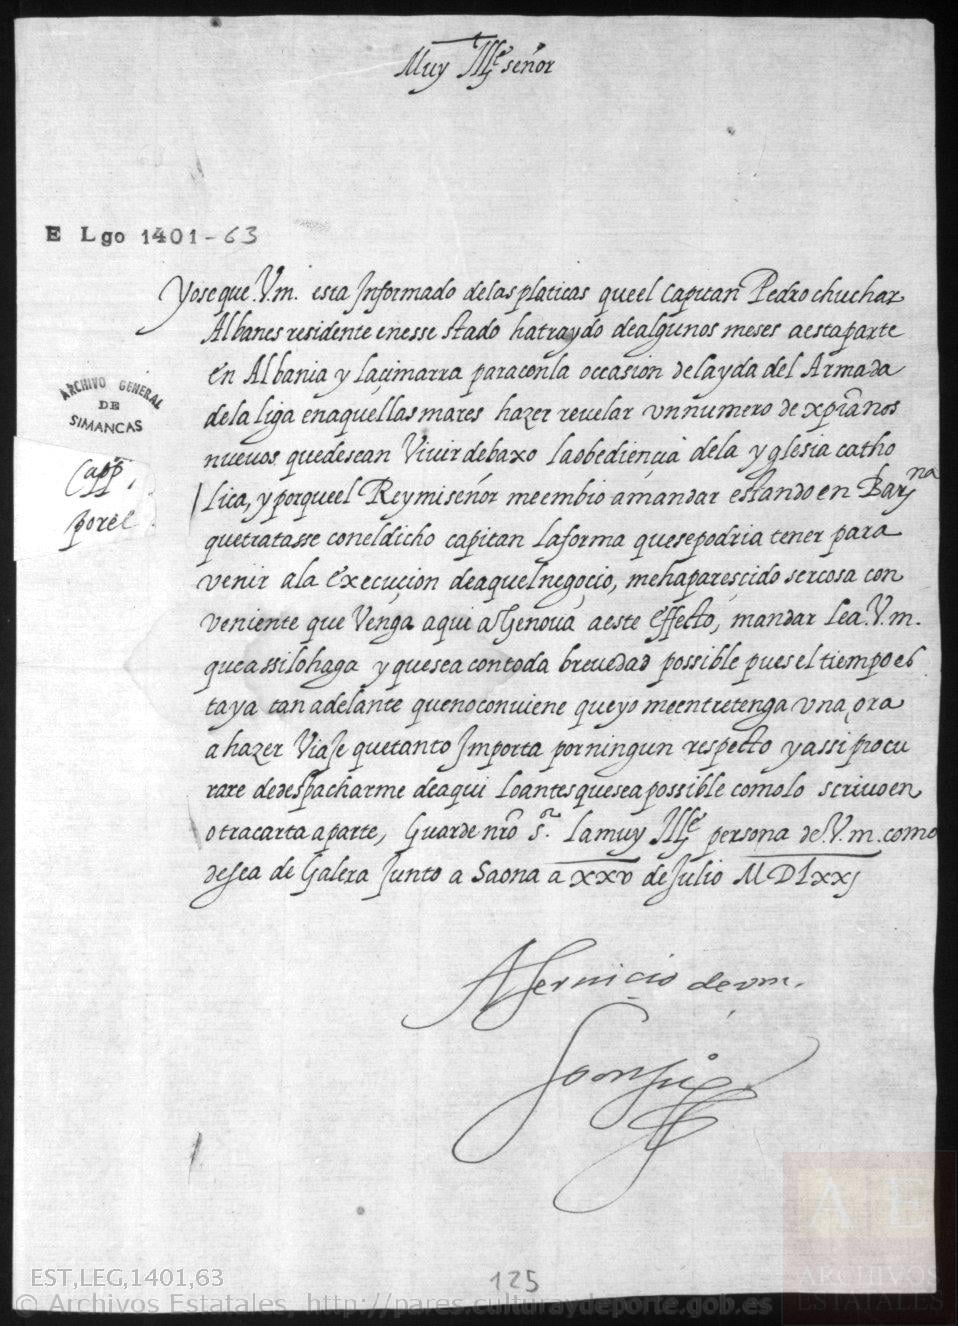 Muy Ill.e señor
E Lgo 1401-63
Yo se que .V.m. esta Informado de las platicas que el capitan Pedro chuchar
Albanes residente en esse stado ha traydo de algunos meses a esta parte
en Albania y la cimarra para con la occasion de la yda del Armada
de la liga en aquellas mares hazer reuelar vn numero de xpianos
nueuos que desean Viuir debaxo la obediencia de la yglesia catho
lica, y porque el Rey mi señor me embio a mandar estando en Bar.na
que tratasse con el dicho capitan la forma que se podria tener para
venir a la execucion de aquel negocio, me ha parescido ser cosa con
veniente que Venga aqui a Genoua a este effecto, mandar lea .V.m.
que assi lo haga y que sea con toda breuedad possible pues el tiempo es
ta ya tan adelante que no conuiene que yo me entretenga vna ora
a hazer Viaje que tanto Importa por ningun respecto y assi procu
rare de despacharme de aqui lo antes que sea possible como lo scriuo en
otra carta a parte, Guarde nro s.r la muy Ill.e persona de .V.m. como
desea de Galera Junto a Saona a xxv de Julio MDLxxj
A seruicio de vm.
Don Juº
ARCHIVO GENERAL
DE
SIMANCAS
Capp
por el
125
EST,LEG,1401,63
© Archivos Estatales, http://pares.culturaydeporte.gob.es
AE
ARCHIVOS
ESTATALES